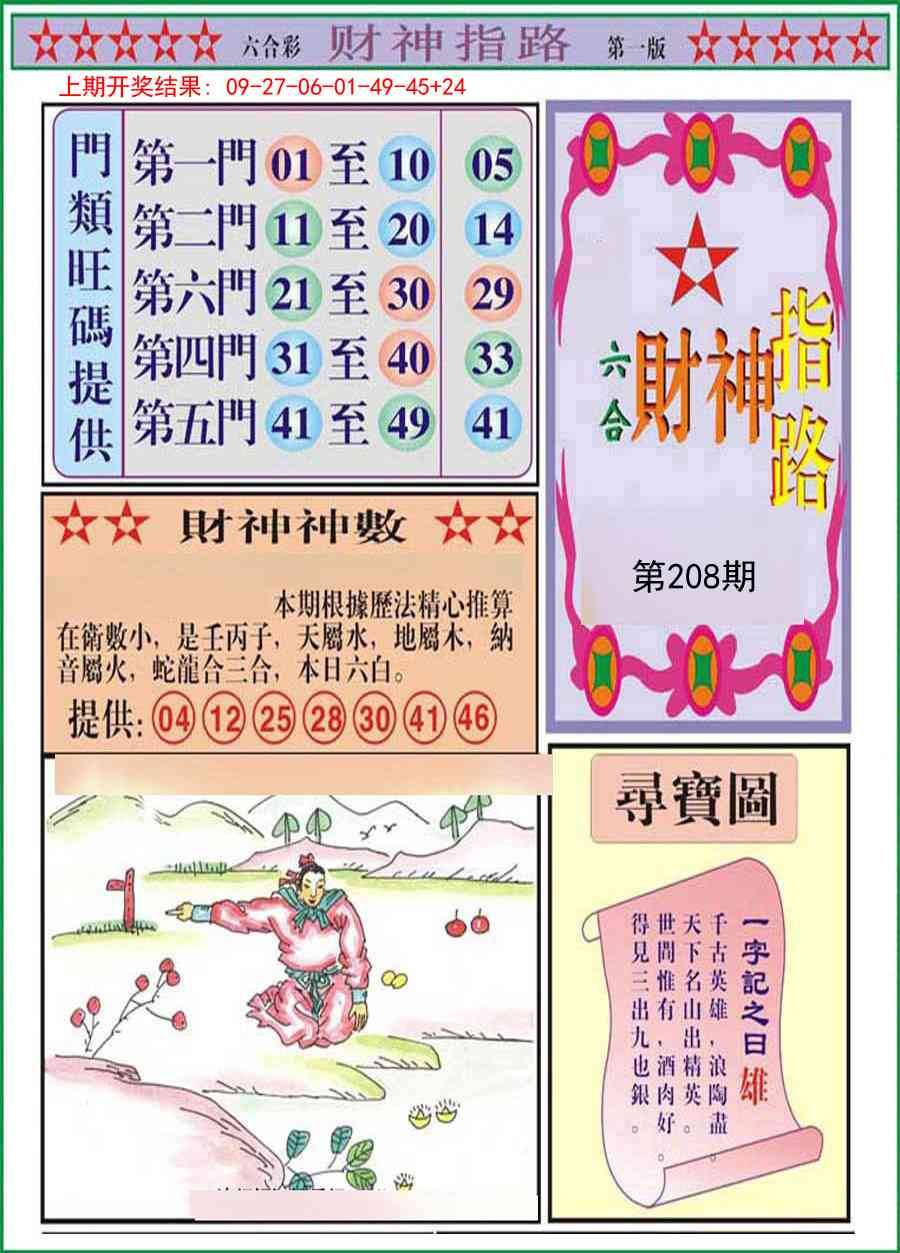 六合彩 财神指路 第一版
上期开奖结果：09-27-06-01-49-45+24
門類旺碼提供
第一門 01 至 10 05
第二門 11 至 20 14
第六門 21 至 30 29
第四門 31 至 40 33
第五門 41 至 49 41
六合 財神 指路
第208期
財神神數
本期根據歷法精心推算
在衛數小，是壬丙子，天屬水，地屬木，納
音屬火，蛇龍合三合，本日六白。
提供: 04 12 25 28 30 41 46
尋寶圖
一字記之曰 雄
千古英雄，浪陶盡。
天下名山出，精英。
世間惟有，酒肉好。
得見三出九也銀。